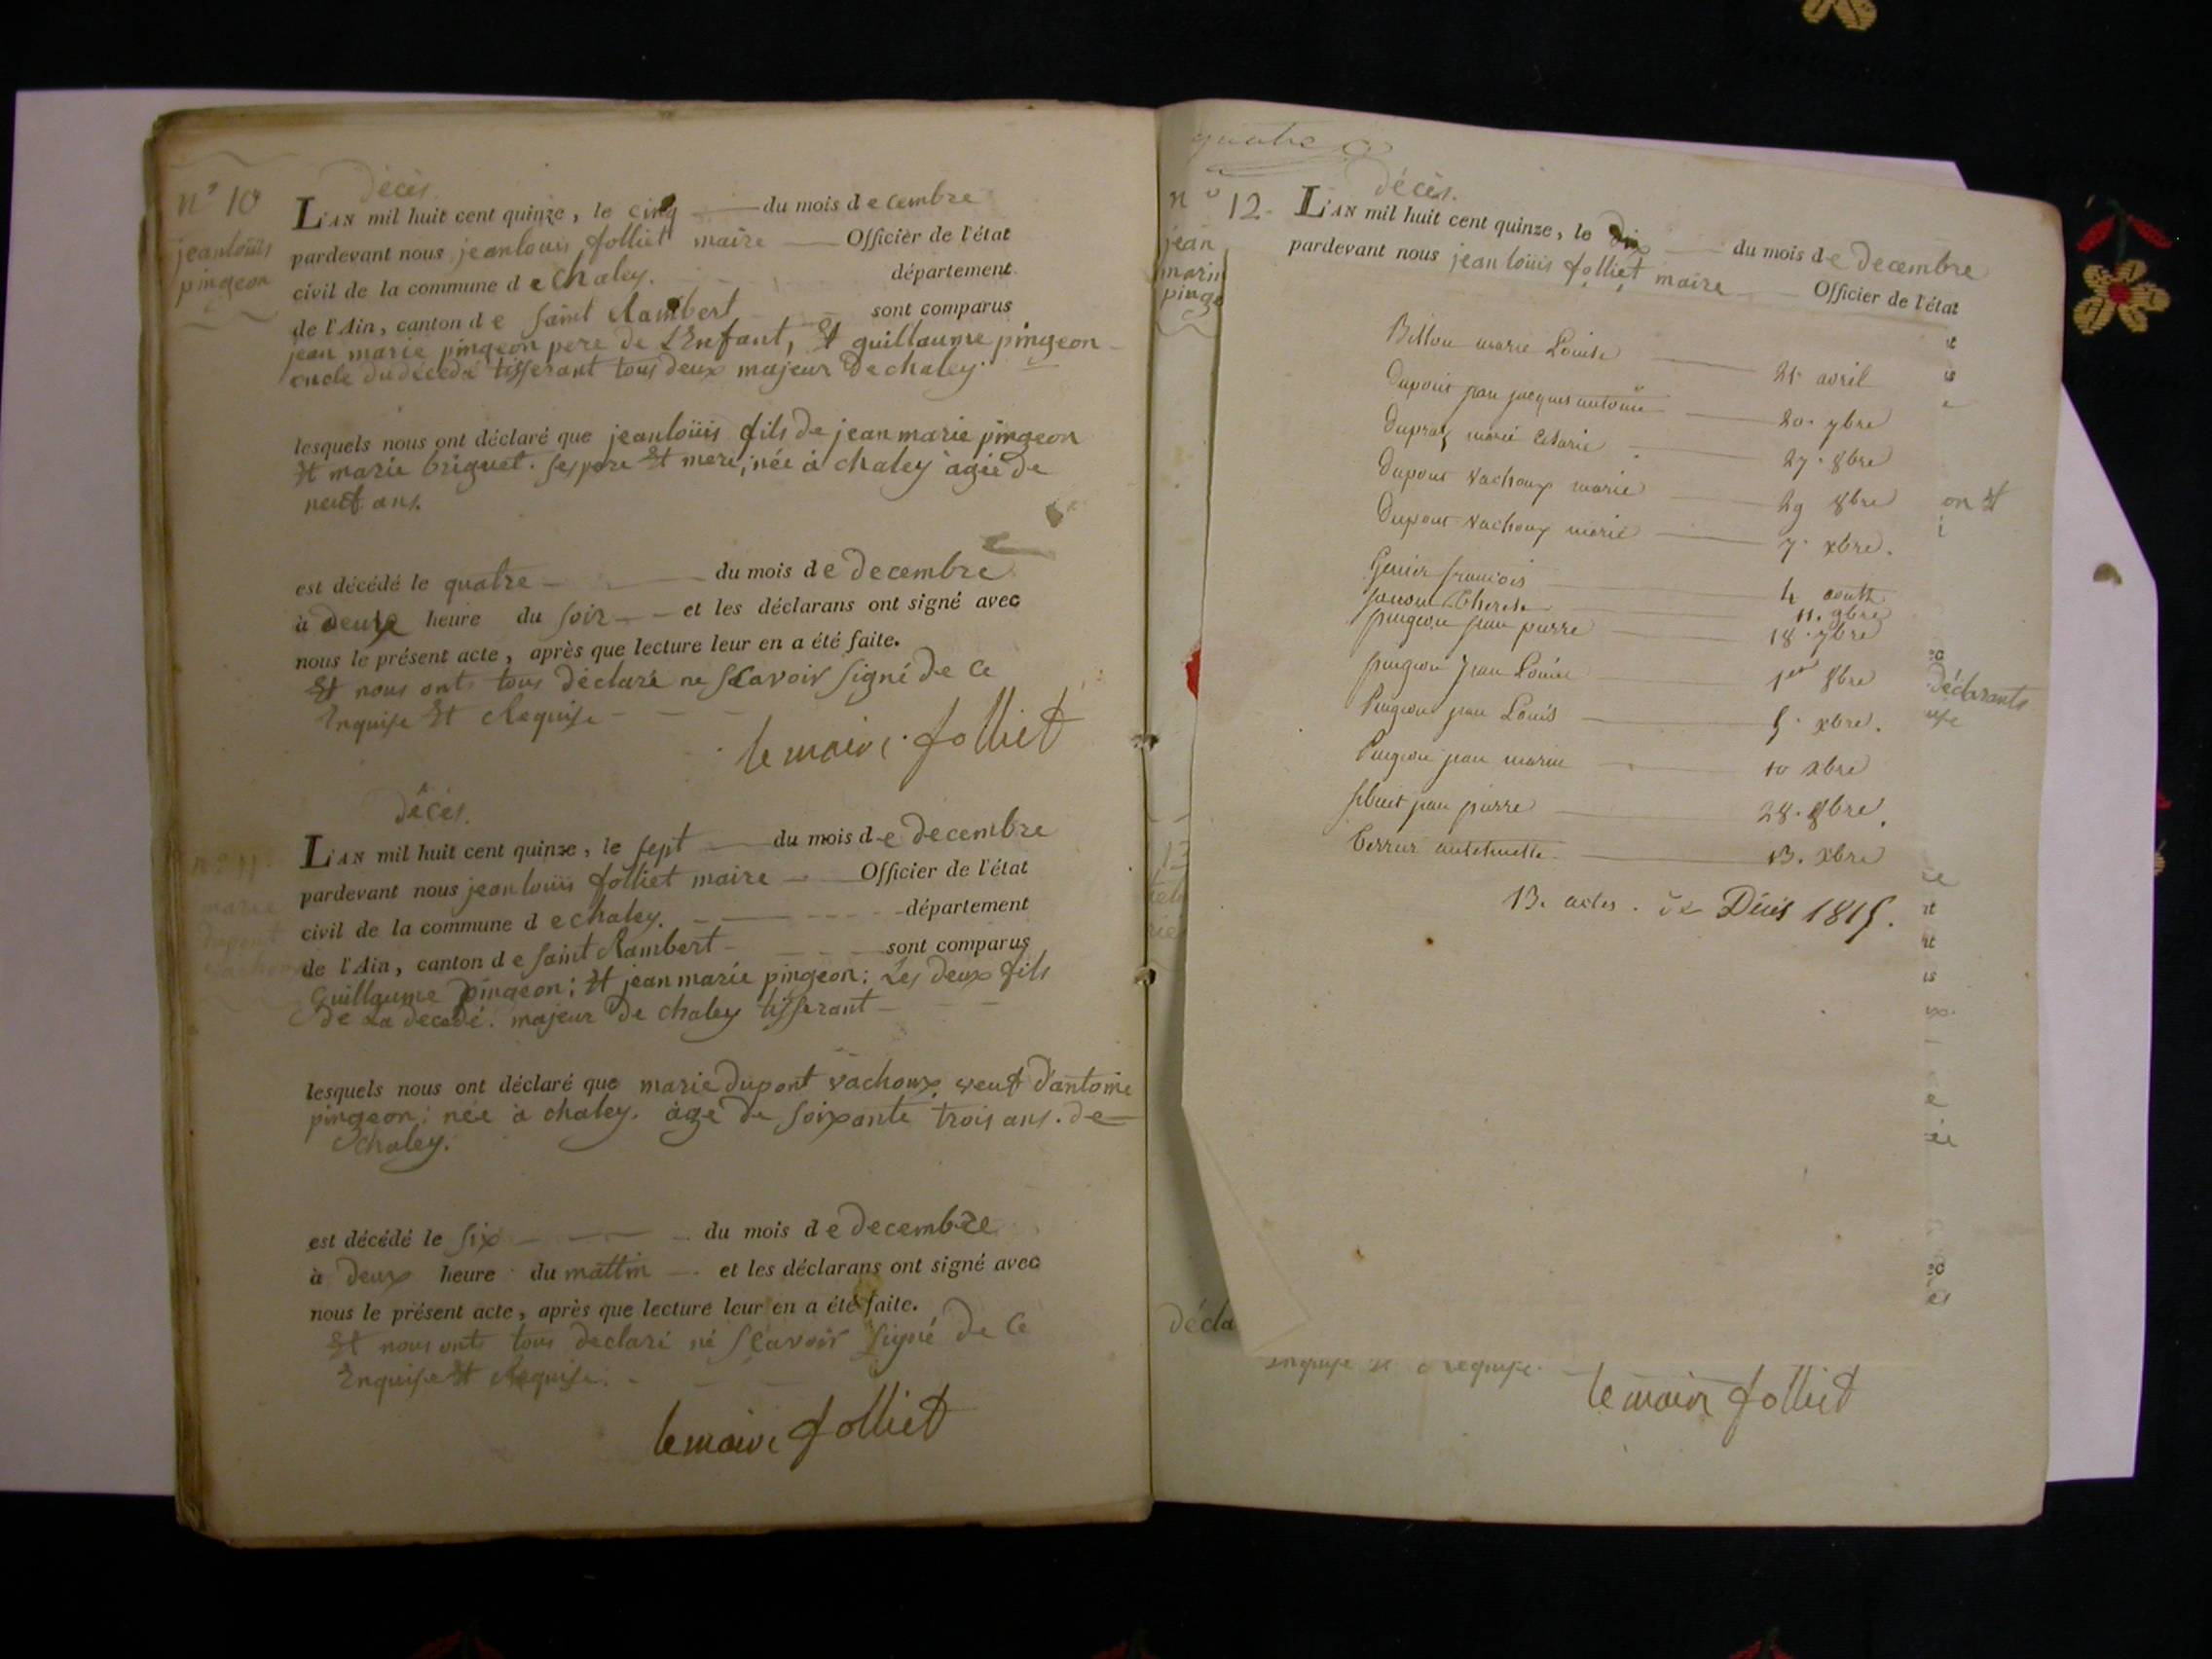 n° 10
jeanloüis
pingeon
décès.
L'AN mil huit cent quinze, le cinq du mois decembre
pardevant nous jeanlouis folliet maire Officier de l'état
civil de la commune de Chaley. département
de l'Ain, canton de Saint Rambert sont comparus
jean marie pingeon pere de L'Enfant, Et guillaume pingeon
oncle du décédé tisserant tous deux majeur De chaley.
lesquels nous ont déclaré que jeanloüis fils de jean marie pingeon
Et marie briguet. ses pere Et mere, née à chaley agée de
neuf ans.
est décédé le quatre du mois de Decembre
à Deux heure du soir et les déclarans ont signé avec
nous le présent acte, après que lecture leur en a été faite.
Et nous onts tous déclaré ne Scavoir signé de Ce
Enquise Et Requise
le maire folliet
n° 11
marie
dupont
vachoux
décès.
L'AN mil huit cent quinze, le sept du mois de Decembre
pardevant nous jeanloüis folliet maire Officier de l'état
civil de la commune de chaley. département
de l'Ain, canton de Saint Rambert sont comparus
Guillaume pingeon; Et jean marie pingeon; Les deux fils
de La decedé. majeur De chaley tisserant
lesquels nous ont déclaré que marie Dupont vachoux veuf D'antoine
pingeon; née à chaley. agé de Soixante trois ans. de
Chaley.
est décédé le Six du mois de Decembre
à Deux heure du mattin et les déclarans ont signé avec
nous le présent acte, après que lecture leur en a été faite.
Et nous onts tous declaré né Scavoir Signé de Ce
Enquise Et Requise.
le maire folliet
quatre
n° 12.
jean
marin
pinge
décès.
L'AN mil huit cent quinze, le Dix du mois de Decembre
pardevant nous jean loüis folliet maire Officier de l'état
Billon marie Louise 21 avril
Dupont jean jacques antoine 20. 7bre
Dupraz marie 27. 8bre
Dupont Vachoux marie 29 8bre
Dupont Vachoux marie 7. xbre.
Genier francois 4 aoutt
Therese 11. 9bre
pingeon jean pierre 18. 7bre
pingeon Jean Louis 1er 8bre
Pingeon jean Louis 5. xbre.
Pingeon jean marin 10 xbre
jean pierre 28. 8bre.
antoinette 13. xbre
13. actes. de Décés 1815.
on Et
déclarants
décla
Enquise Et Requise.
le maire folliet